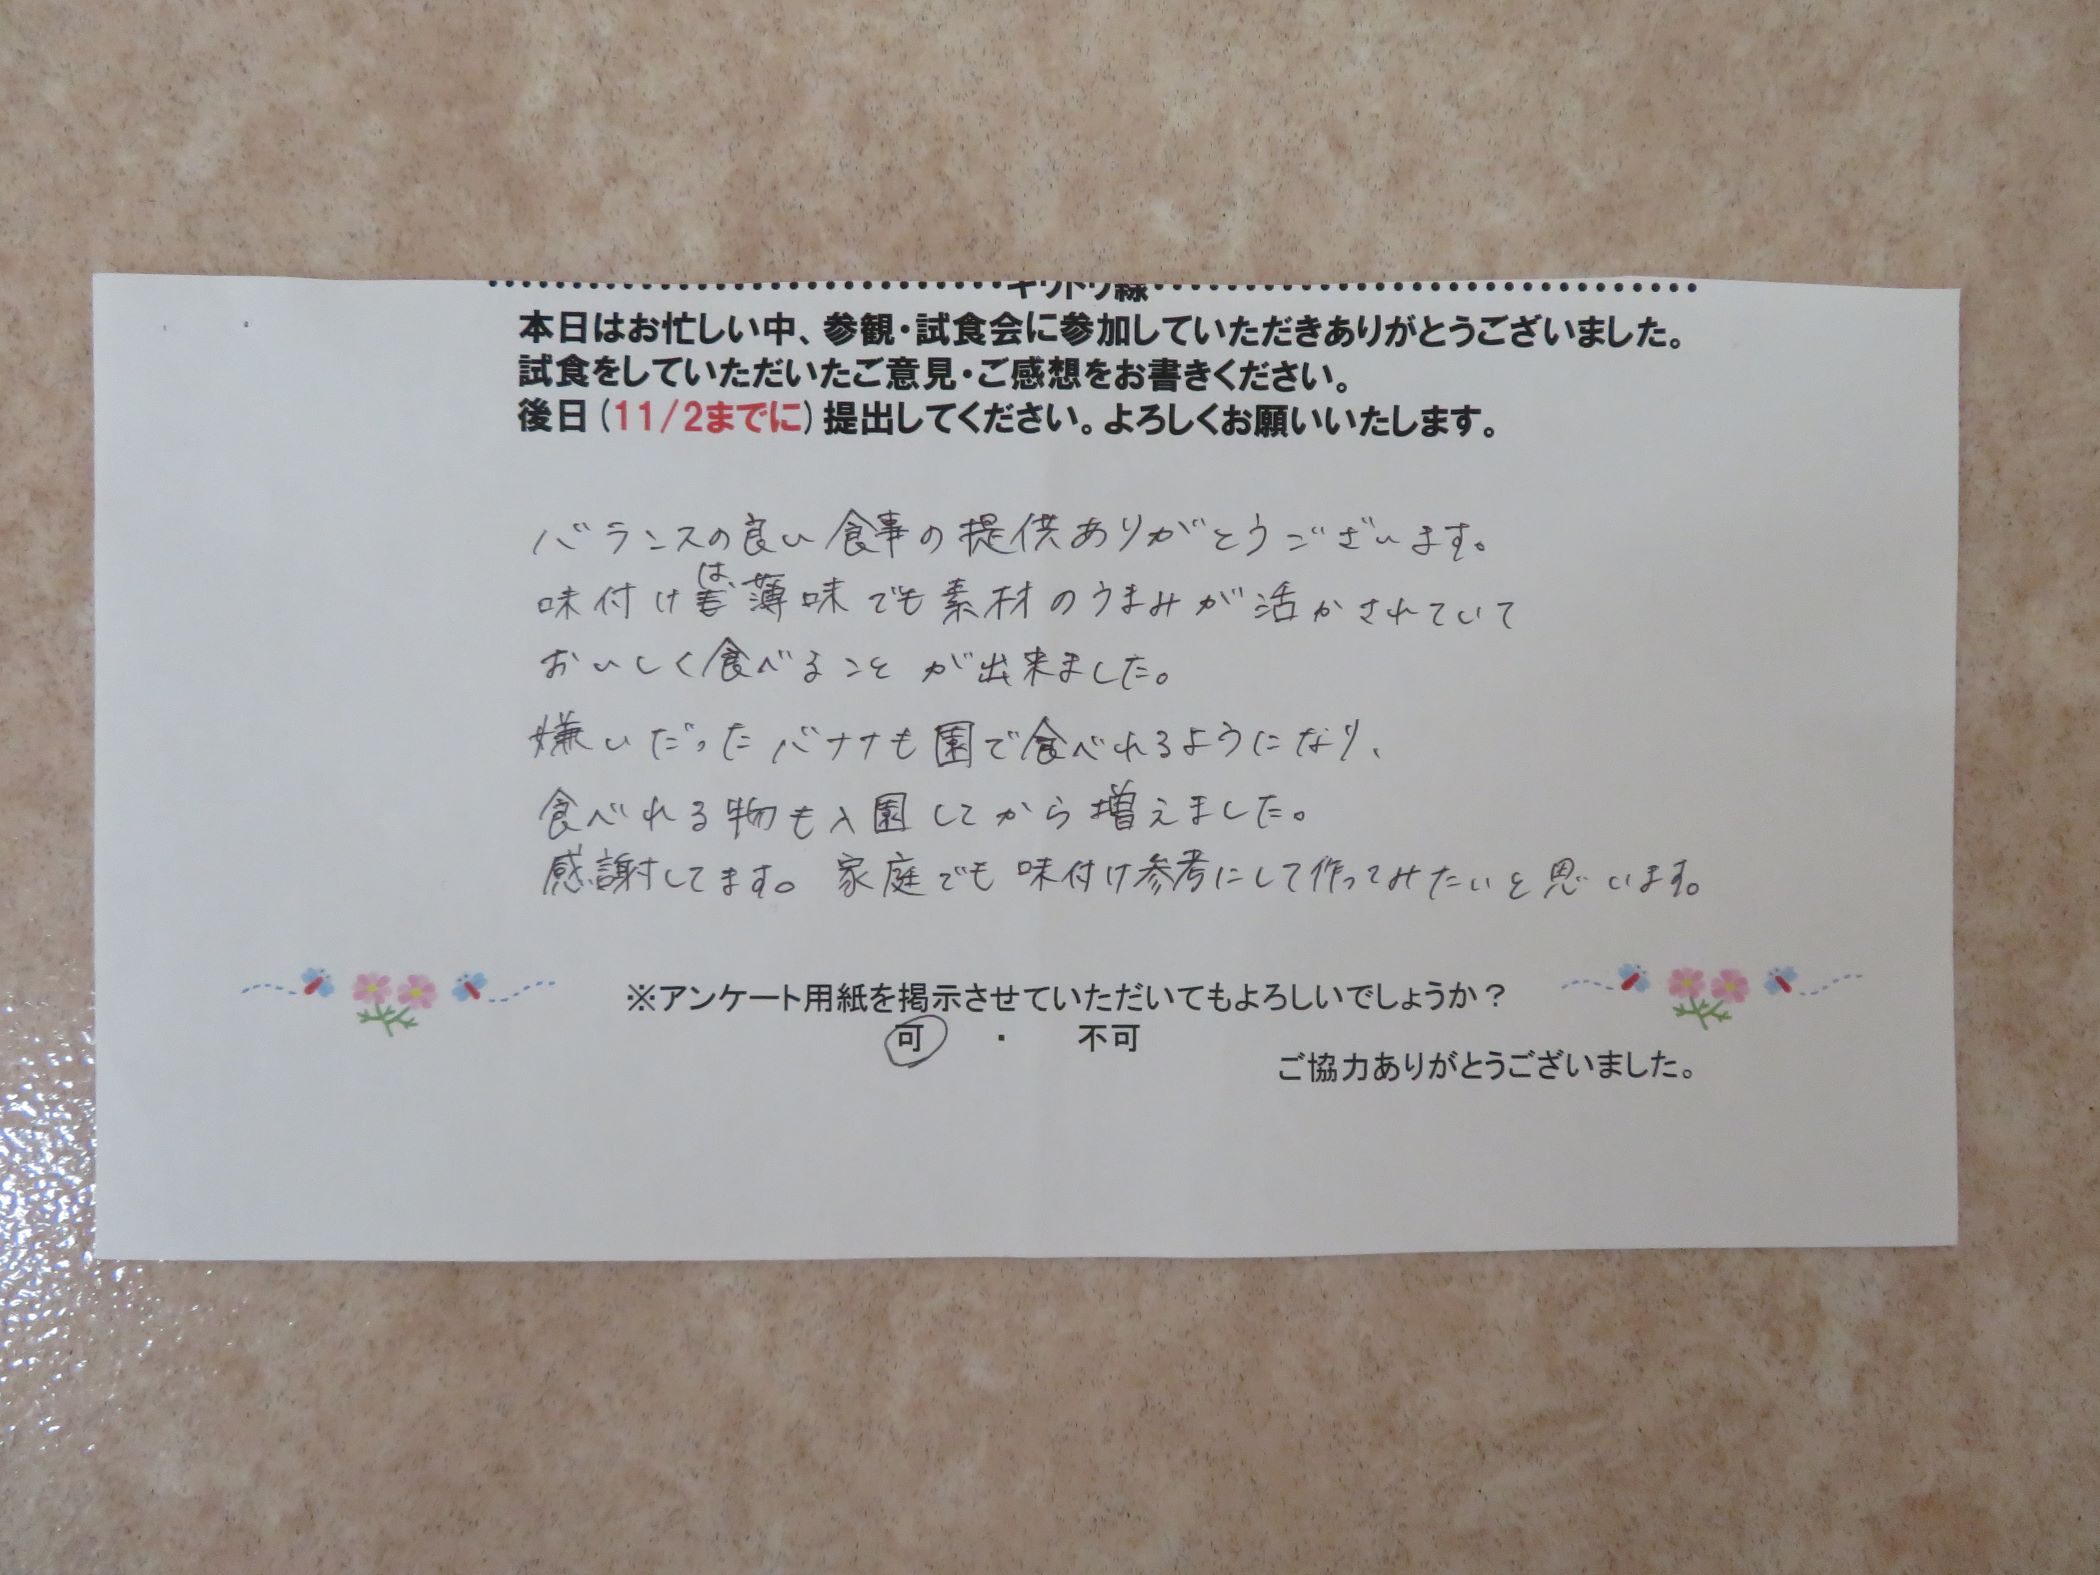 キリトリ線
本日はお忙しい中、参観・試食会に参加していただきありがとうございました。
試食をしていただいたご意見・ご感想をお書きください。
後日(11/2までに)提出してください。よろしくお願いいたします。
バランスの良い食事の提供ありがとうございます。
味付けは、薄味でも素材のうまみが活かされていて
おいしく食べることが出来ました。
嫌いだったバナナも園で食べれるようになり、
食べれる物も入園してから増えました。
感謝してます。家庭でも味付け参考にして作ってみたいと思います。
※アンケート用紙を掲示させていただいてもよろしいでしょうか？
可 ・ 不可
ご協力ありがとうございました。